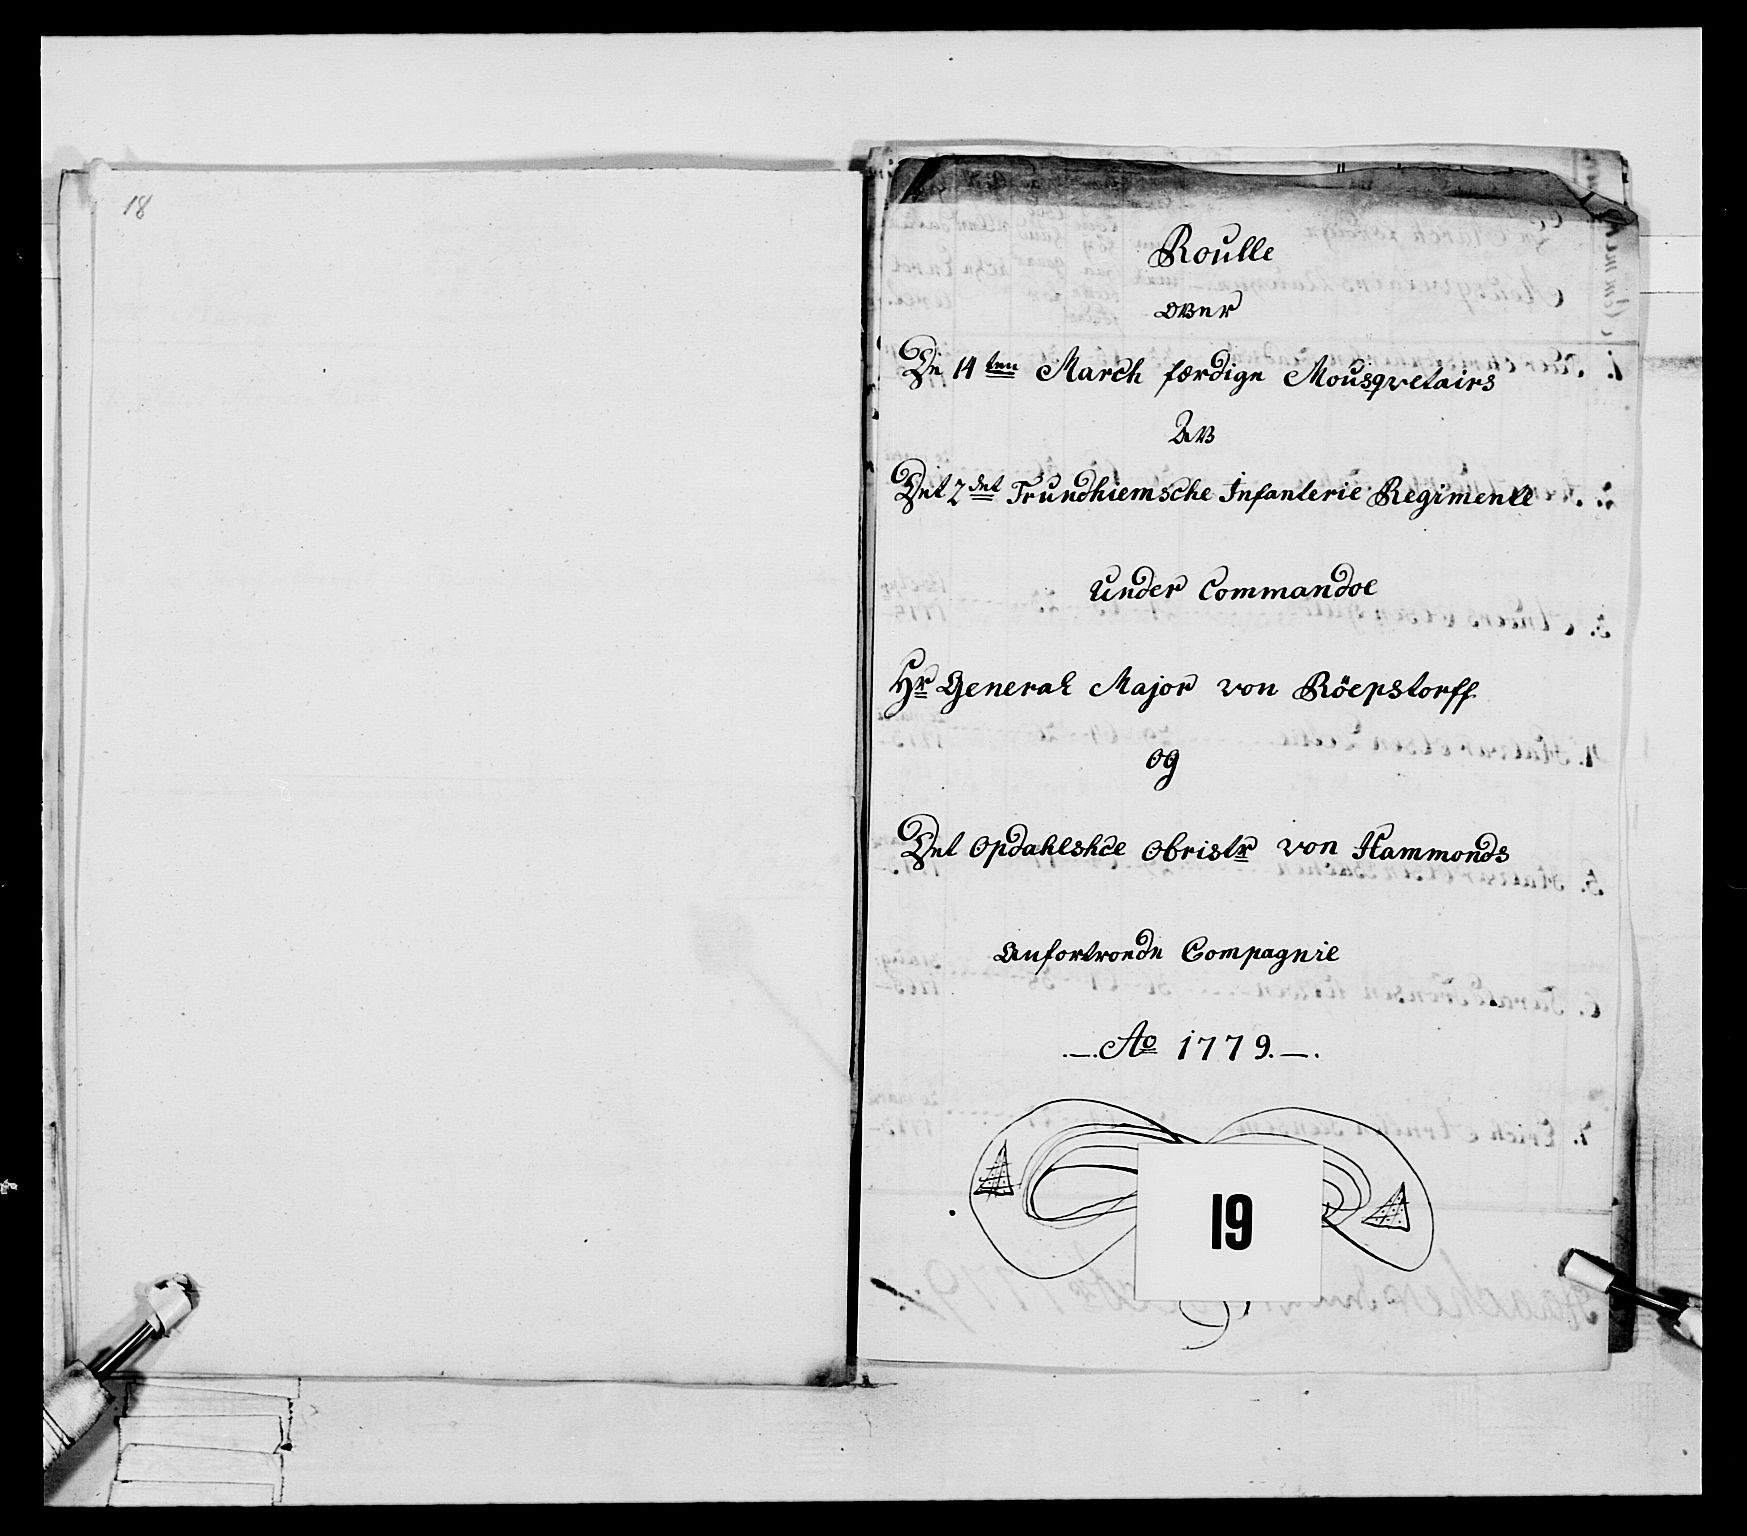 18
Roulle
over
De 14 ten March færdige Mousqvetairs
Av
Det 2 det Trundhiemsche Infanterie Regimente
Under Commandoe
Hr General Major von Röepstorff
og
Det Opdahlskce Obristr von Hammonds
Anfortroede Compagnie
_._. Ao 1779. _._.
19